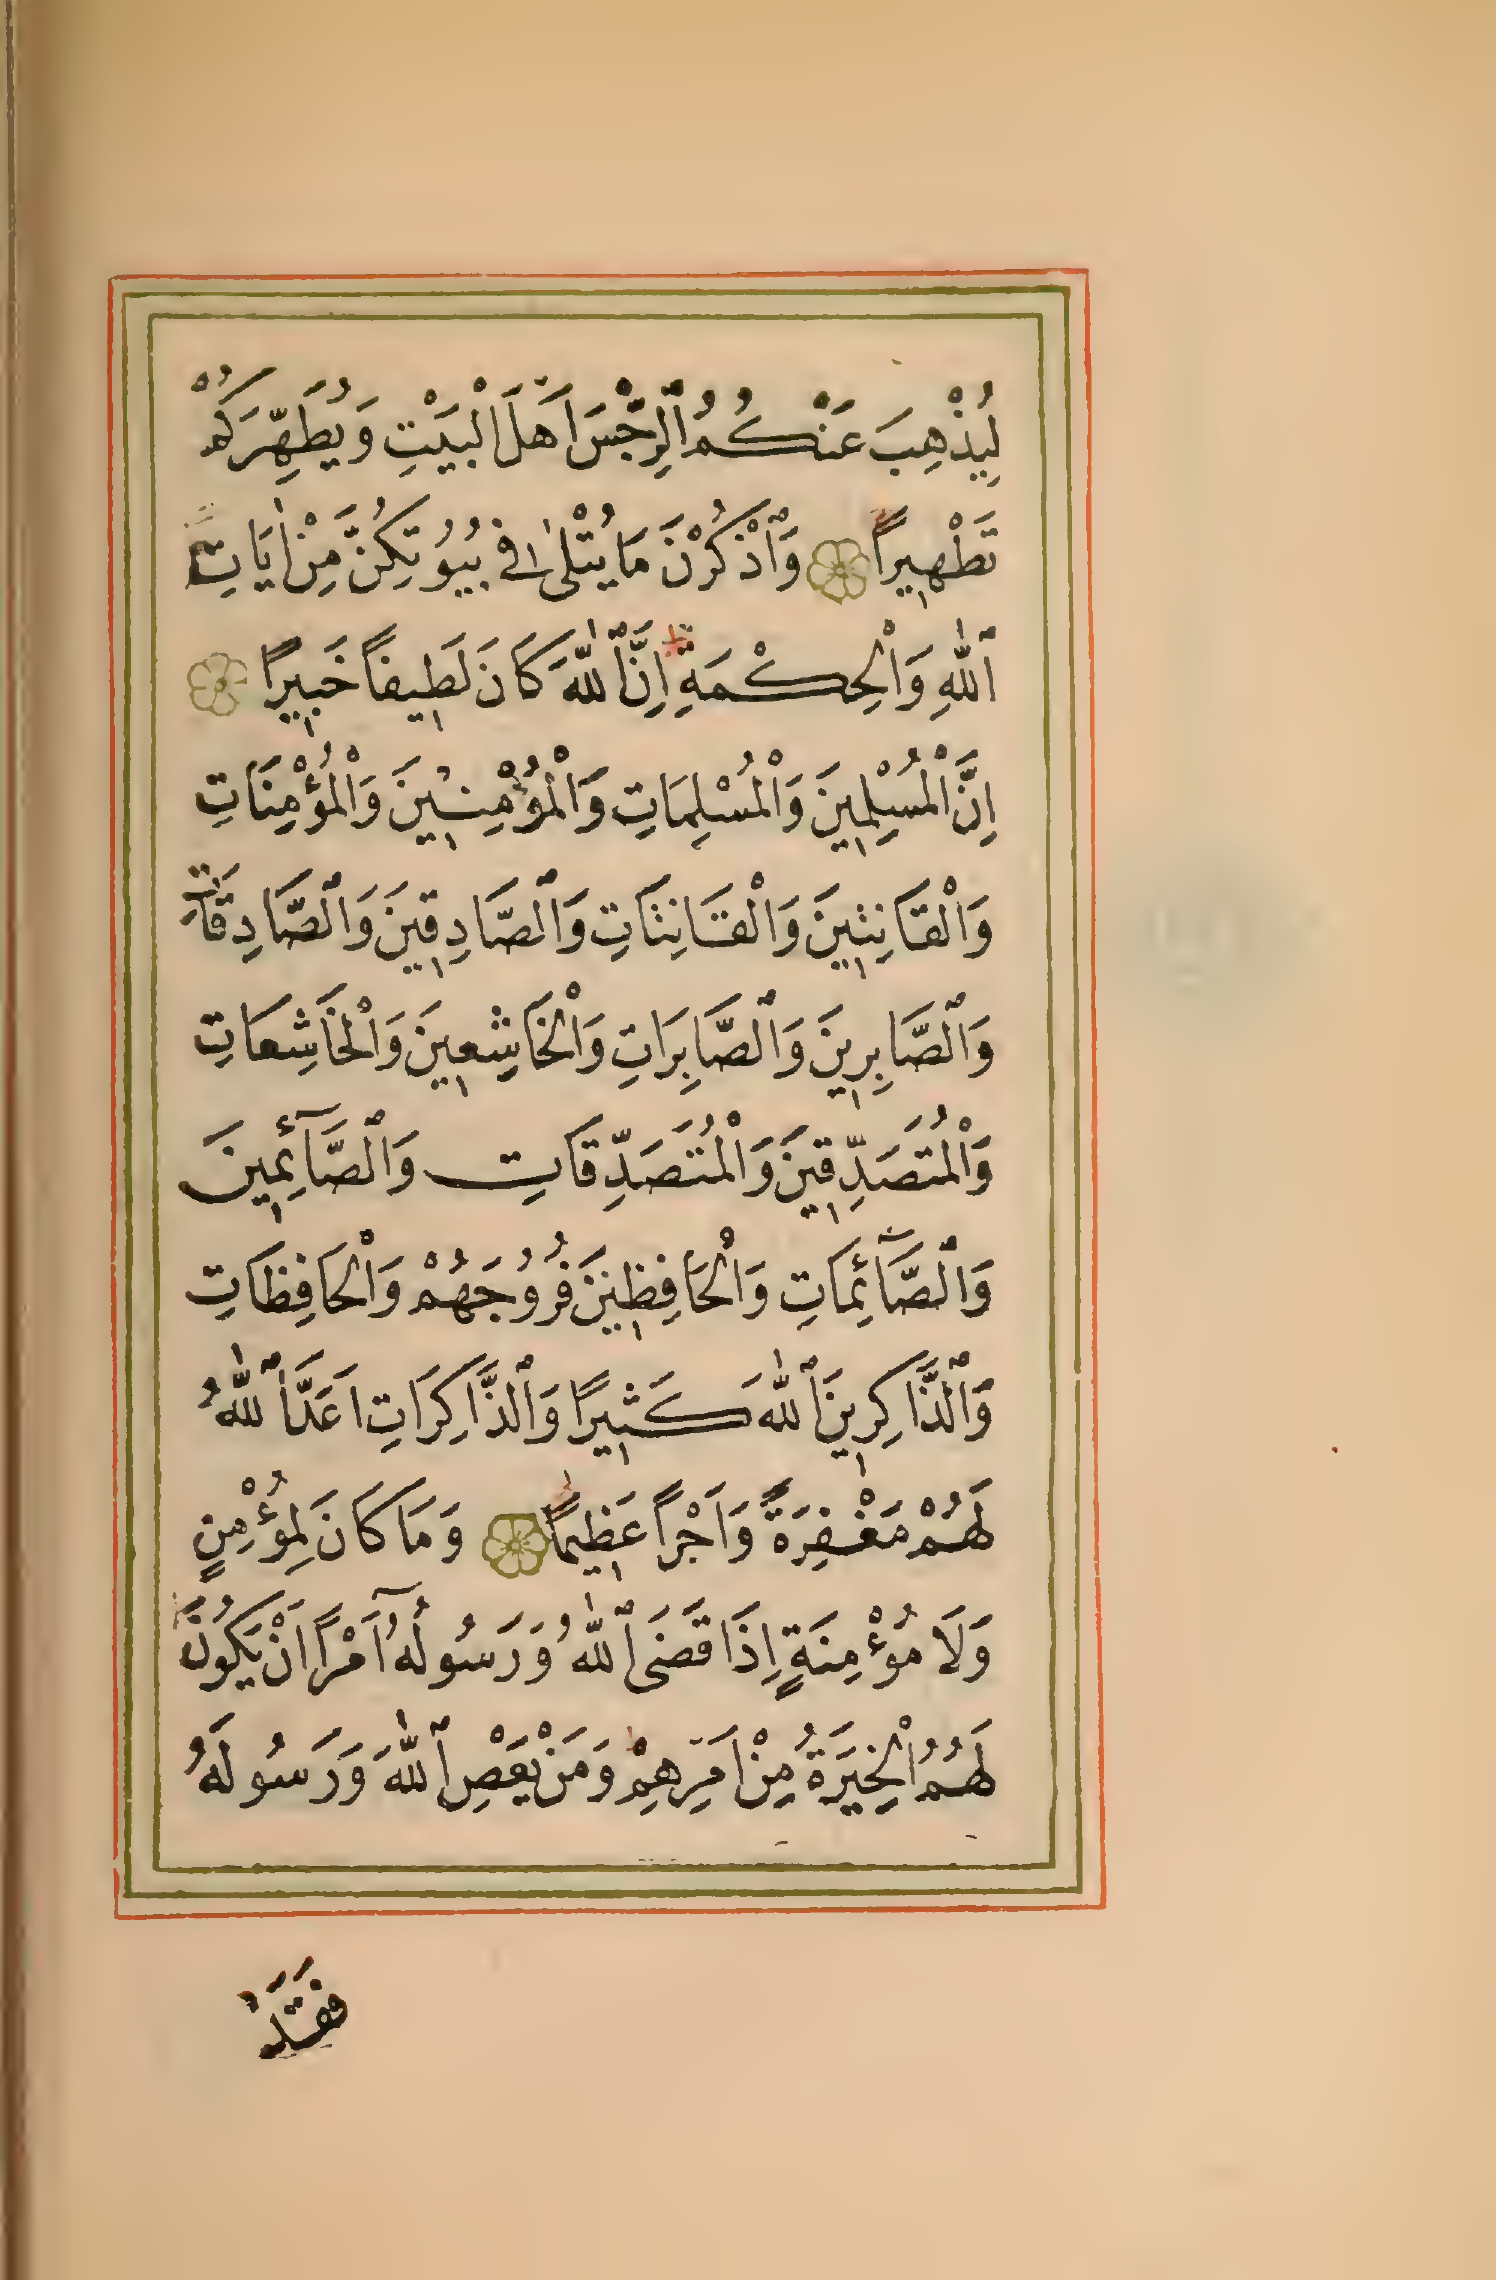 لِيُذْهِبَ عَنْكُمُ ٱلرِّجْسَ اَهْلَ الْبَيْتِ وَيُطَهِّرَكُمْ
تَطْهِيرًا وَٱذْكُرْنَ مَا يُتْلٰى فِى بُيُوتِكُنَّ مِنْ اٰيَاتِ
ٱللّٰهِ وَالْحِكْمَةِ اِنَّ ٱللّٰهَ كَانَ لَطِيفًا خَبِيرًا
اِنَّ الْمُسْلِمِينَ وَالْمُسْلِمَاتِ وَالْمُؤْمِنِينَ وَالْمُؤْمِنَاتِ
وَالْقَانِتِينَ وَالْقَانِتَاتِ وَٱلصَّادِقِينَ وَٱلصَّادِقَاتِ
وَٱلصَّابِرِينَ وَٱلصَّابِرَاتِ وَالْخَاشِعِينَ وَالْخَاشِعَاتِ
وَالْمُتَصَدِّقِينَ وَالْمُتَصَدِّقَاتِ وَٱلصَّآئِمِينَ
وَٱلصَّآئِمَاتِ وَالْحَافِظِينَ فُرُوجَهُمْ وَالْحَافِظَاتِ
وَٱلذَّاكِرِينَ ٱللّٰهَ كَثِيرًا وَٱلذَّاكِرَاتِ اَعَدَّ ٱللّٰهُ
لَهُمْ مَغْفِرَةً وَاَجْرًا عَظِيمًا وَمَا كَانَ لِمُؤْمِنٍ
وَلَا مُؤْمِنَةٍ اِذَا قَضَى ٱللّٰهُ وَرَسُولُهُٓ اَمْرًا اَنْ يَكُونَ
لَهُمُ الْخِيَرَةُ مِنْ اَمْرِهِمْ وَمَنْ يَعْصِ ٱللّٰهَ وَرَسُولَهُ
فَقَدْ